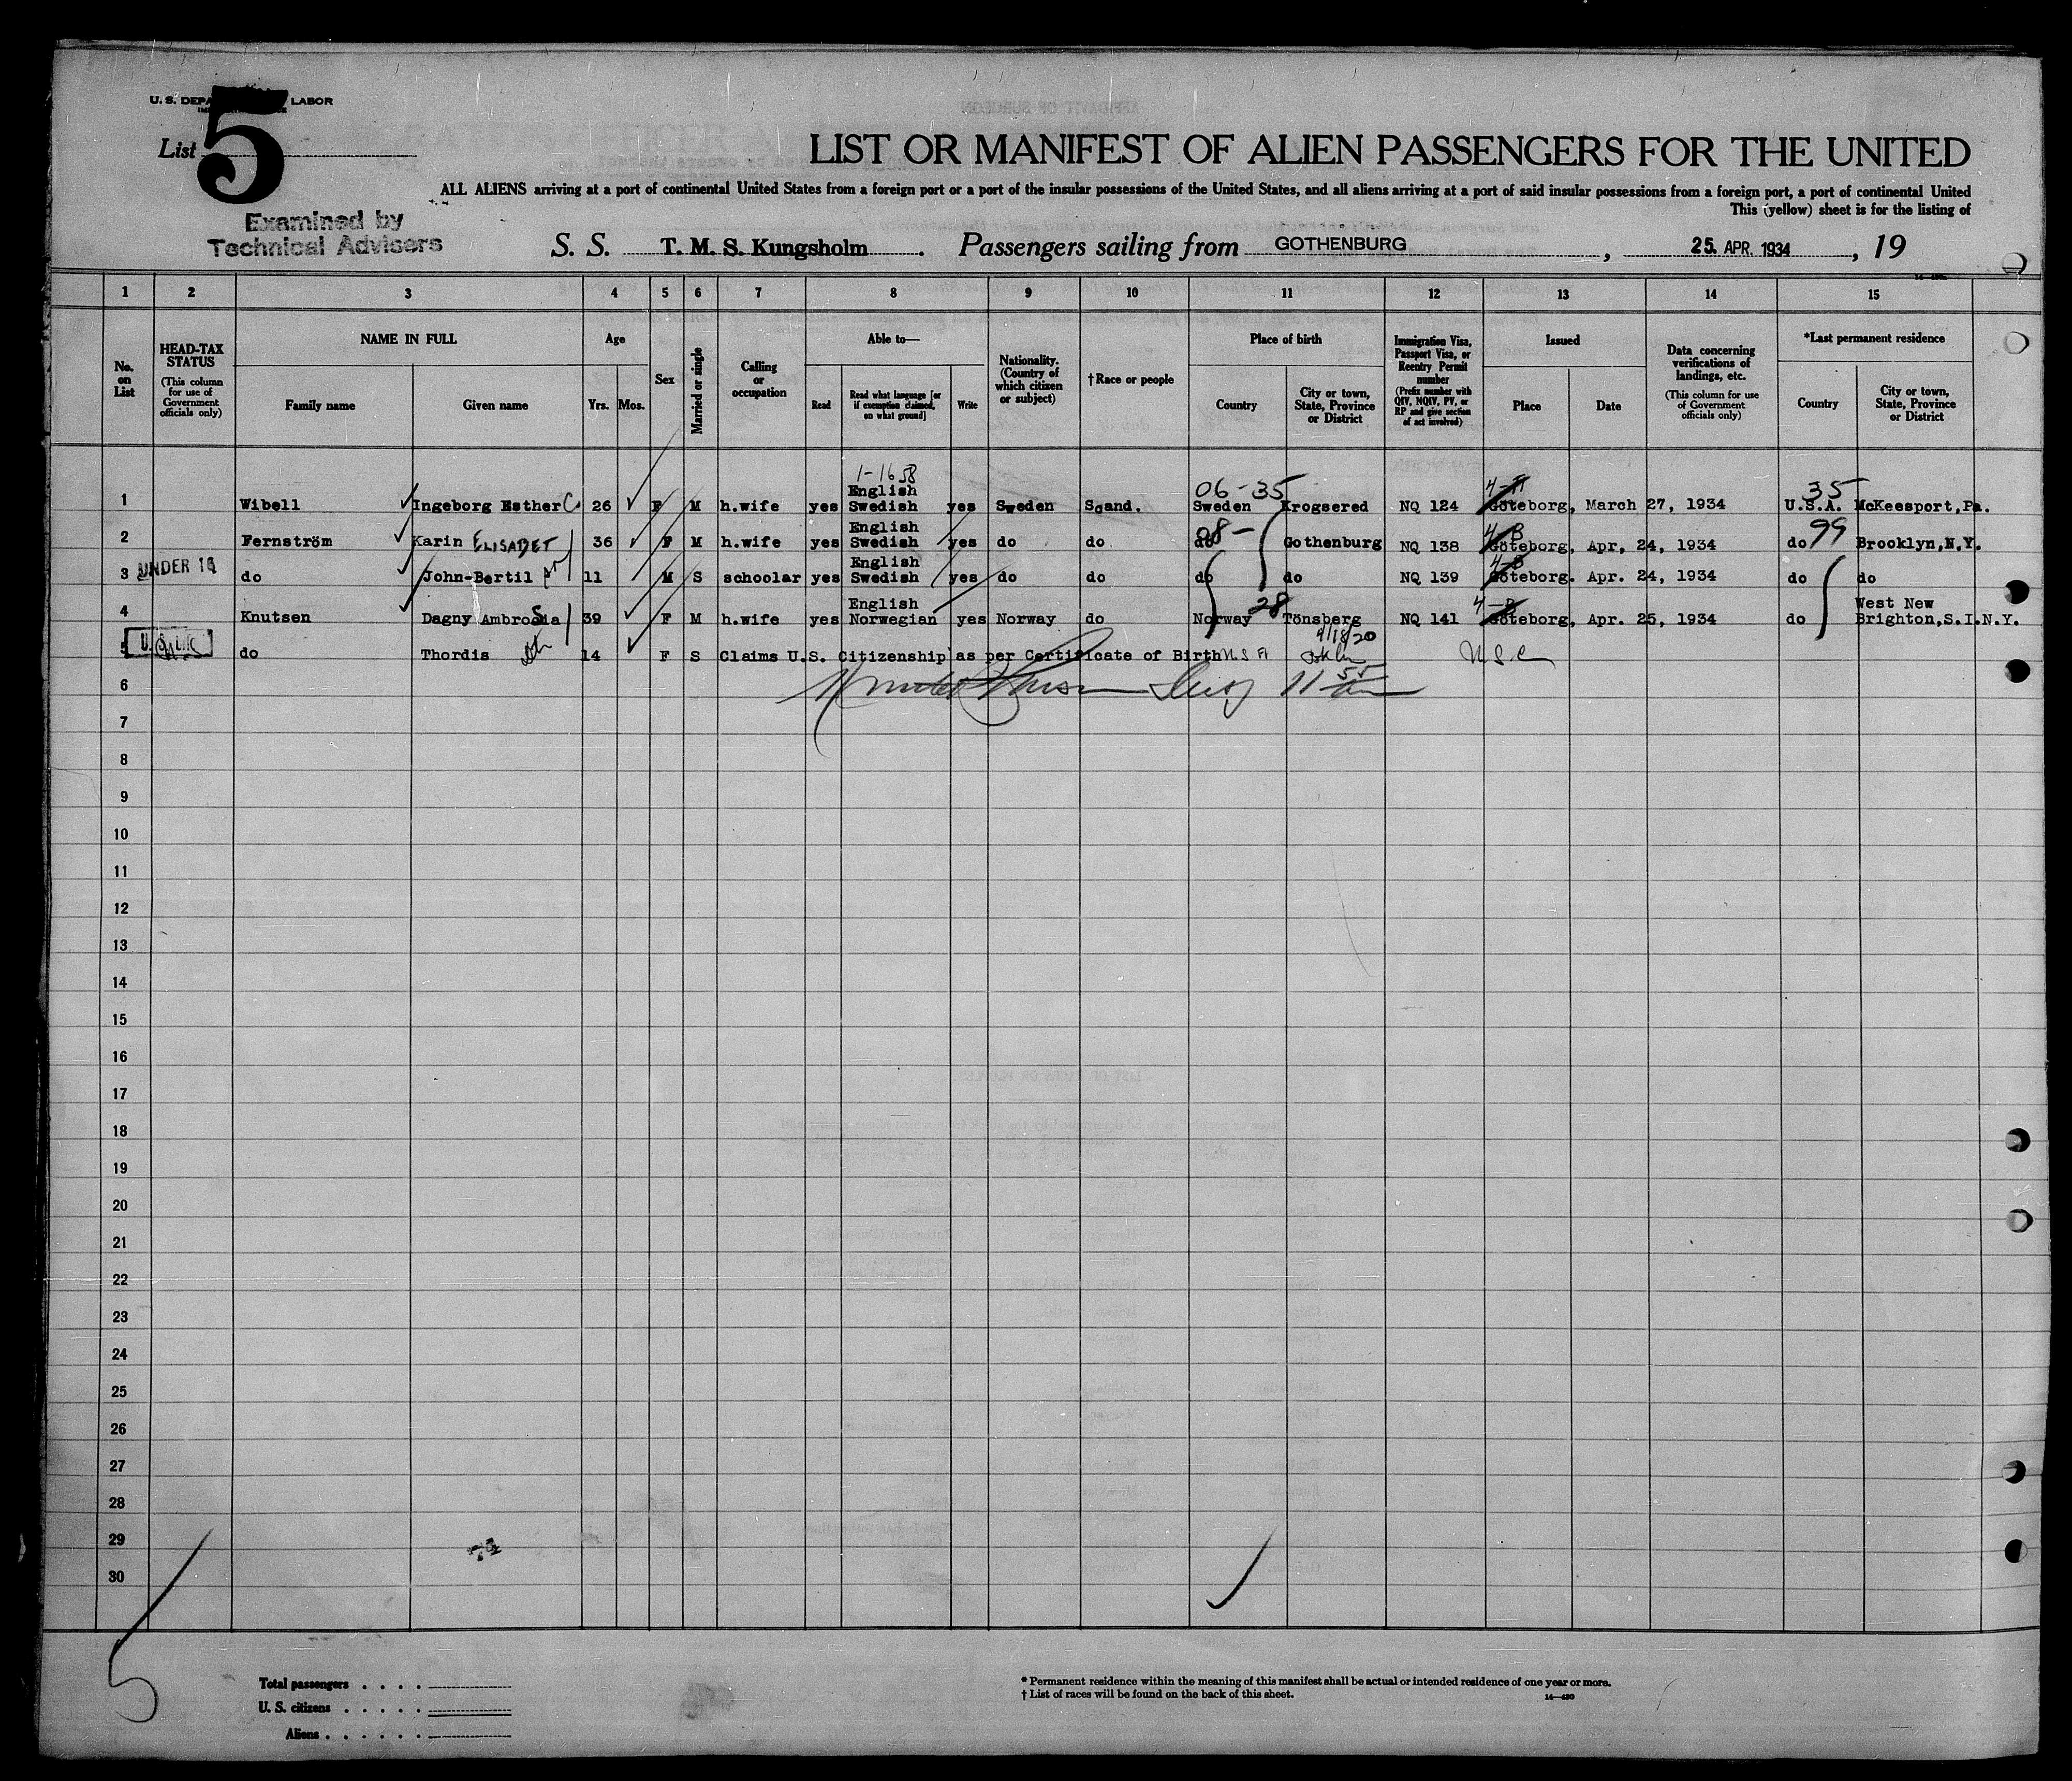 U. S. DEPA LABOR
List 5
LIST OR MANIFEST OF ALIEN PASSENGERS FOR THE UNITED
ALL ALIENS arriving at a port of continental United States from a foreign port or a port of the insular possessions of the United States, and all aliens arriving at a port of said insular possessions from a foreign port, a port of continental United
This (yellow) sheet is for the listing of
Examined by
Technical Advisers
S. S. T. M. S. Kungsholm. Passengers sailing from GOTHENBURG, 25. APR. 1934, 19
1 2 3 4 5 6 7 8 9 10 11 12 13 14 15
No. on List
HEAD-TAX STATUS (This column for use of Government officials only)
NAME IN FULL
Family name Given name
Age
Yrs. Mos.
Sex
Married or single
Calling or occupation
Able to—
Read Read what language [or if exemption claimed, on what ground] Write
Nationality. (Country of which citizen or subject)
†Race or people
Place of birth
Country City or town, State, Province or District
Immigration Visa, Passport Visa, or Reentry Permit number (Prefix number with QIV, NQIV, PV, or RP and give section of act involved)
Issued
Place Date
Data concerning verifications of landings, etc. (This column for use of Government officials only)
*Last permanent residence
Country City or town, State, Province or District
1-1658
06-35 35
1 Wibell Ingeborg Esther C. 26 F M h.wife yes English Swedish yes Sweden Scand. Sweden Krogsered NQ 124 Göteborg, March 27, 1934 U.S.A. McKeesport, Pa.
2 Fernström Karin ELISABET 36 F M h.wife yes English Swedish yes do do do Gothenburg NQ 138 4-B Göteborg, Apr, 24, 1934 do 99 Brooklyn, N.Y.
3 UNDER 16 do John-Bertil 11 M S schoolar yes English Swedish yes do do do do NQ 139 4-B Göteborg. Apr. 24, 1934 do do
4 Knutsen Dagny Ambrosia 39 F M h.wife yes English Norwegian yes Norway do Norway 28 Tönsberg NQ 141 4-B Göteborg, Apr. 25, 1934 do West New Brighton, S.I.N.Y.
5 do Thordis 14 F S Claims U.S. Citizenship as per Certificate of Birth 9/18/20 U.S.C
6
7
8
9
10
11
12
13
14
15
16
17
18
19
20
21
22
23
24
25
26
27
28
29
30
74
5
Total passengers . . . .
U. S. citizens . . . . .
Aliens . . . . . .
* Permanent residence within the meaning of this manifest shall be actual or intended residence of one year or more.
† List of races will be found on the back of this sheet.
14—430